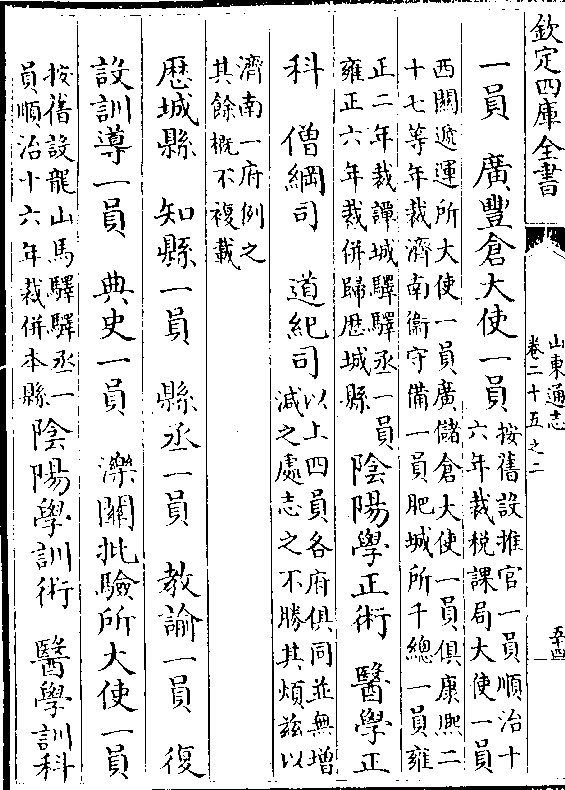 欽定四庫全書
山東通志
卷二十五之二
五十四
一員　廣豐倉大使一員按舊設推官一員順治十
六年裁稅課局大使一員
西關遞運所大使一員廣儲倉大使一員俱康熙二
十七等年裁濟南衞守備一員肥城所千總一員雍
正二年裁譚城驛驛丞一員
雍正六年裁併歸歴城縣陰陽學正術　醫學正
科　僧綱司　道紀司以上四員各府俱同並無增
減之處志之不勝其煩兹以
濟南一府例之
其餘概不複載
歴城縣　知縣一員　縣丞一員　教諭一員　復
設訓導一員　典史一員　濼關批驗所大使一員
按舊設龍山馬驛驛丞一
員順治十六年裁併本縣陰陽學訓術　醫學訓科